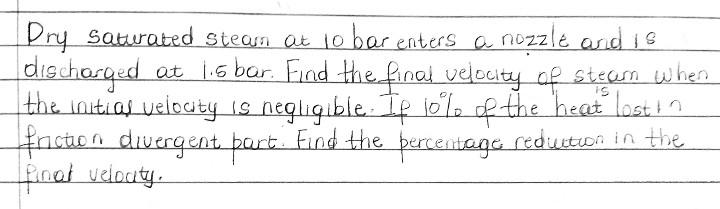 Dry saturated steam at 10 bar enters a nozzle and is
discharged at 1.5 bar. Find the final velocity of steam when
the initial velocity is negligible. If 10% of the heat is lost in
friction divergent part. Find the percentage reduction in the
final velocity.